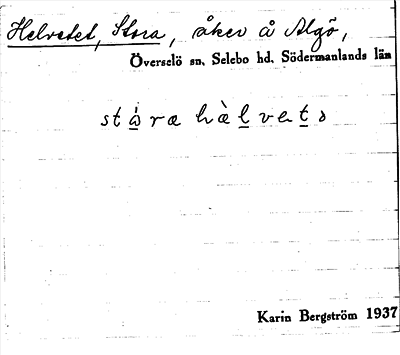 Helvetet, Stora, åker å Algö,
Överselö sn. Selebo hd. Södermanlands län
Karin Bergström 1937